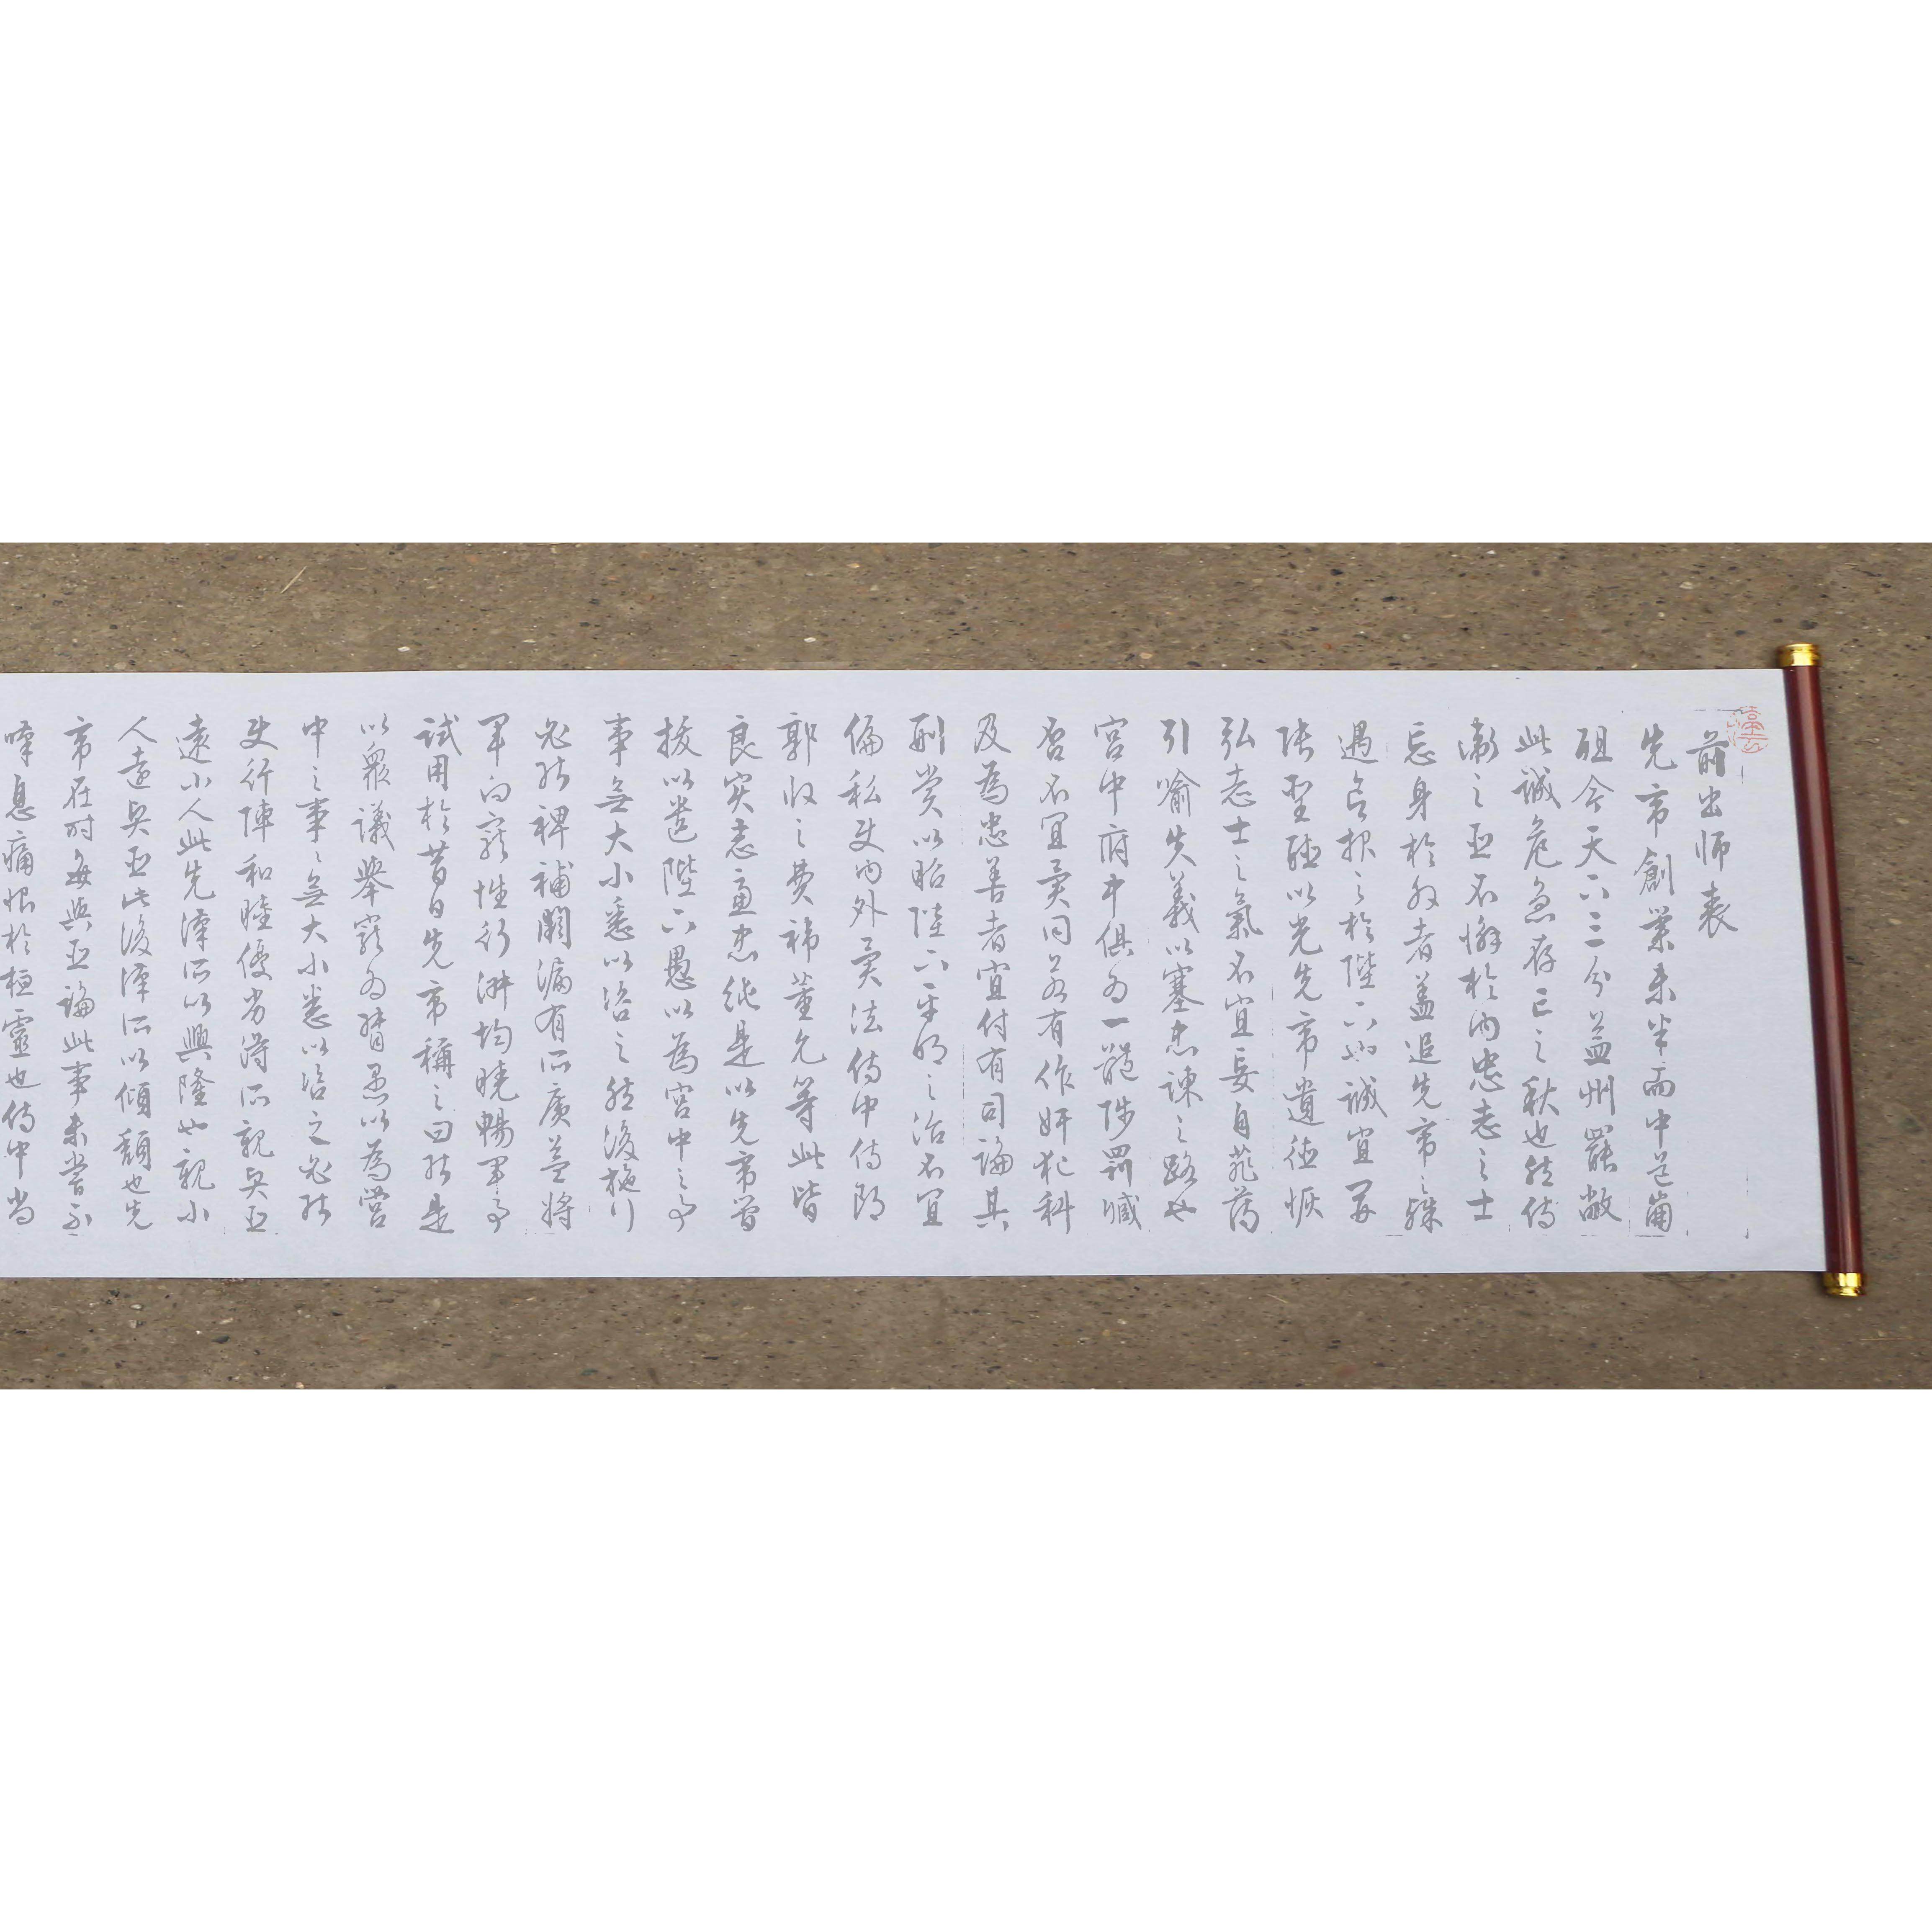 前出师表
先帝創業未半而中道崩
殂今天下三分益州罷敝
此誠危急存亡之秋也然侍
衛之臣不懈於內忠志之士
忘身於外者蓋追先帝之殊
遇欲报之於陛下也誠宜開
张聖聽以光先帝遺德恢
弘志士之氣不宜妄自菲薄
引喻失義以塞忠諫之路也
宮中府中俱為一體陟罰臧
否不宜異同若有作奸犯科
及為忠善者宜付有司論其
刑賞以昭陛下平明之治不宜
偏私使內外異法侍中侍郎
郭攸之費禕董允等此皆
良实志慮忠純是以先帝簡
拔以遺陛下愚以為宮中之事
事無大小悉以咨之然後施行
必能裨補闕漏有所廣益將
軍向寵性行淑均曉暢軍事
試用於昔日先帝稱之曰能是
以眾議舉寵為督愚以為營
中之事事無大小悉以咨之必能
使行陣和睦優劣得所親賢臣
遠小人此先漢所以興隆也親小
人遠賢臣此後漢所以傾頹也先
帝在时每與臣論此事未嘗不
嘆息痛恨於桓靈也侍中尚